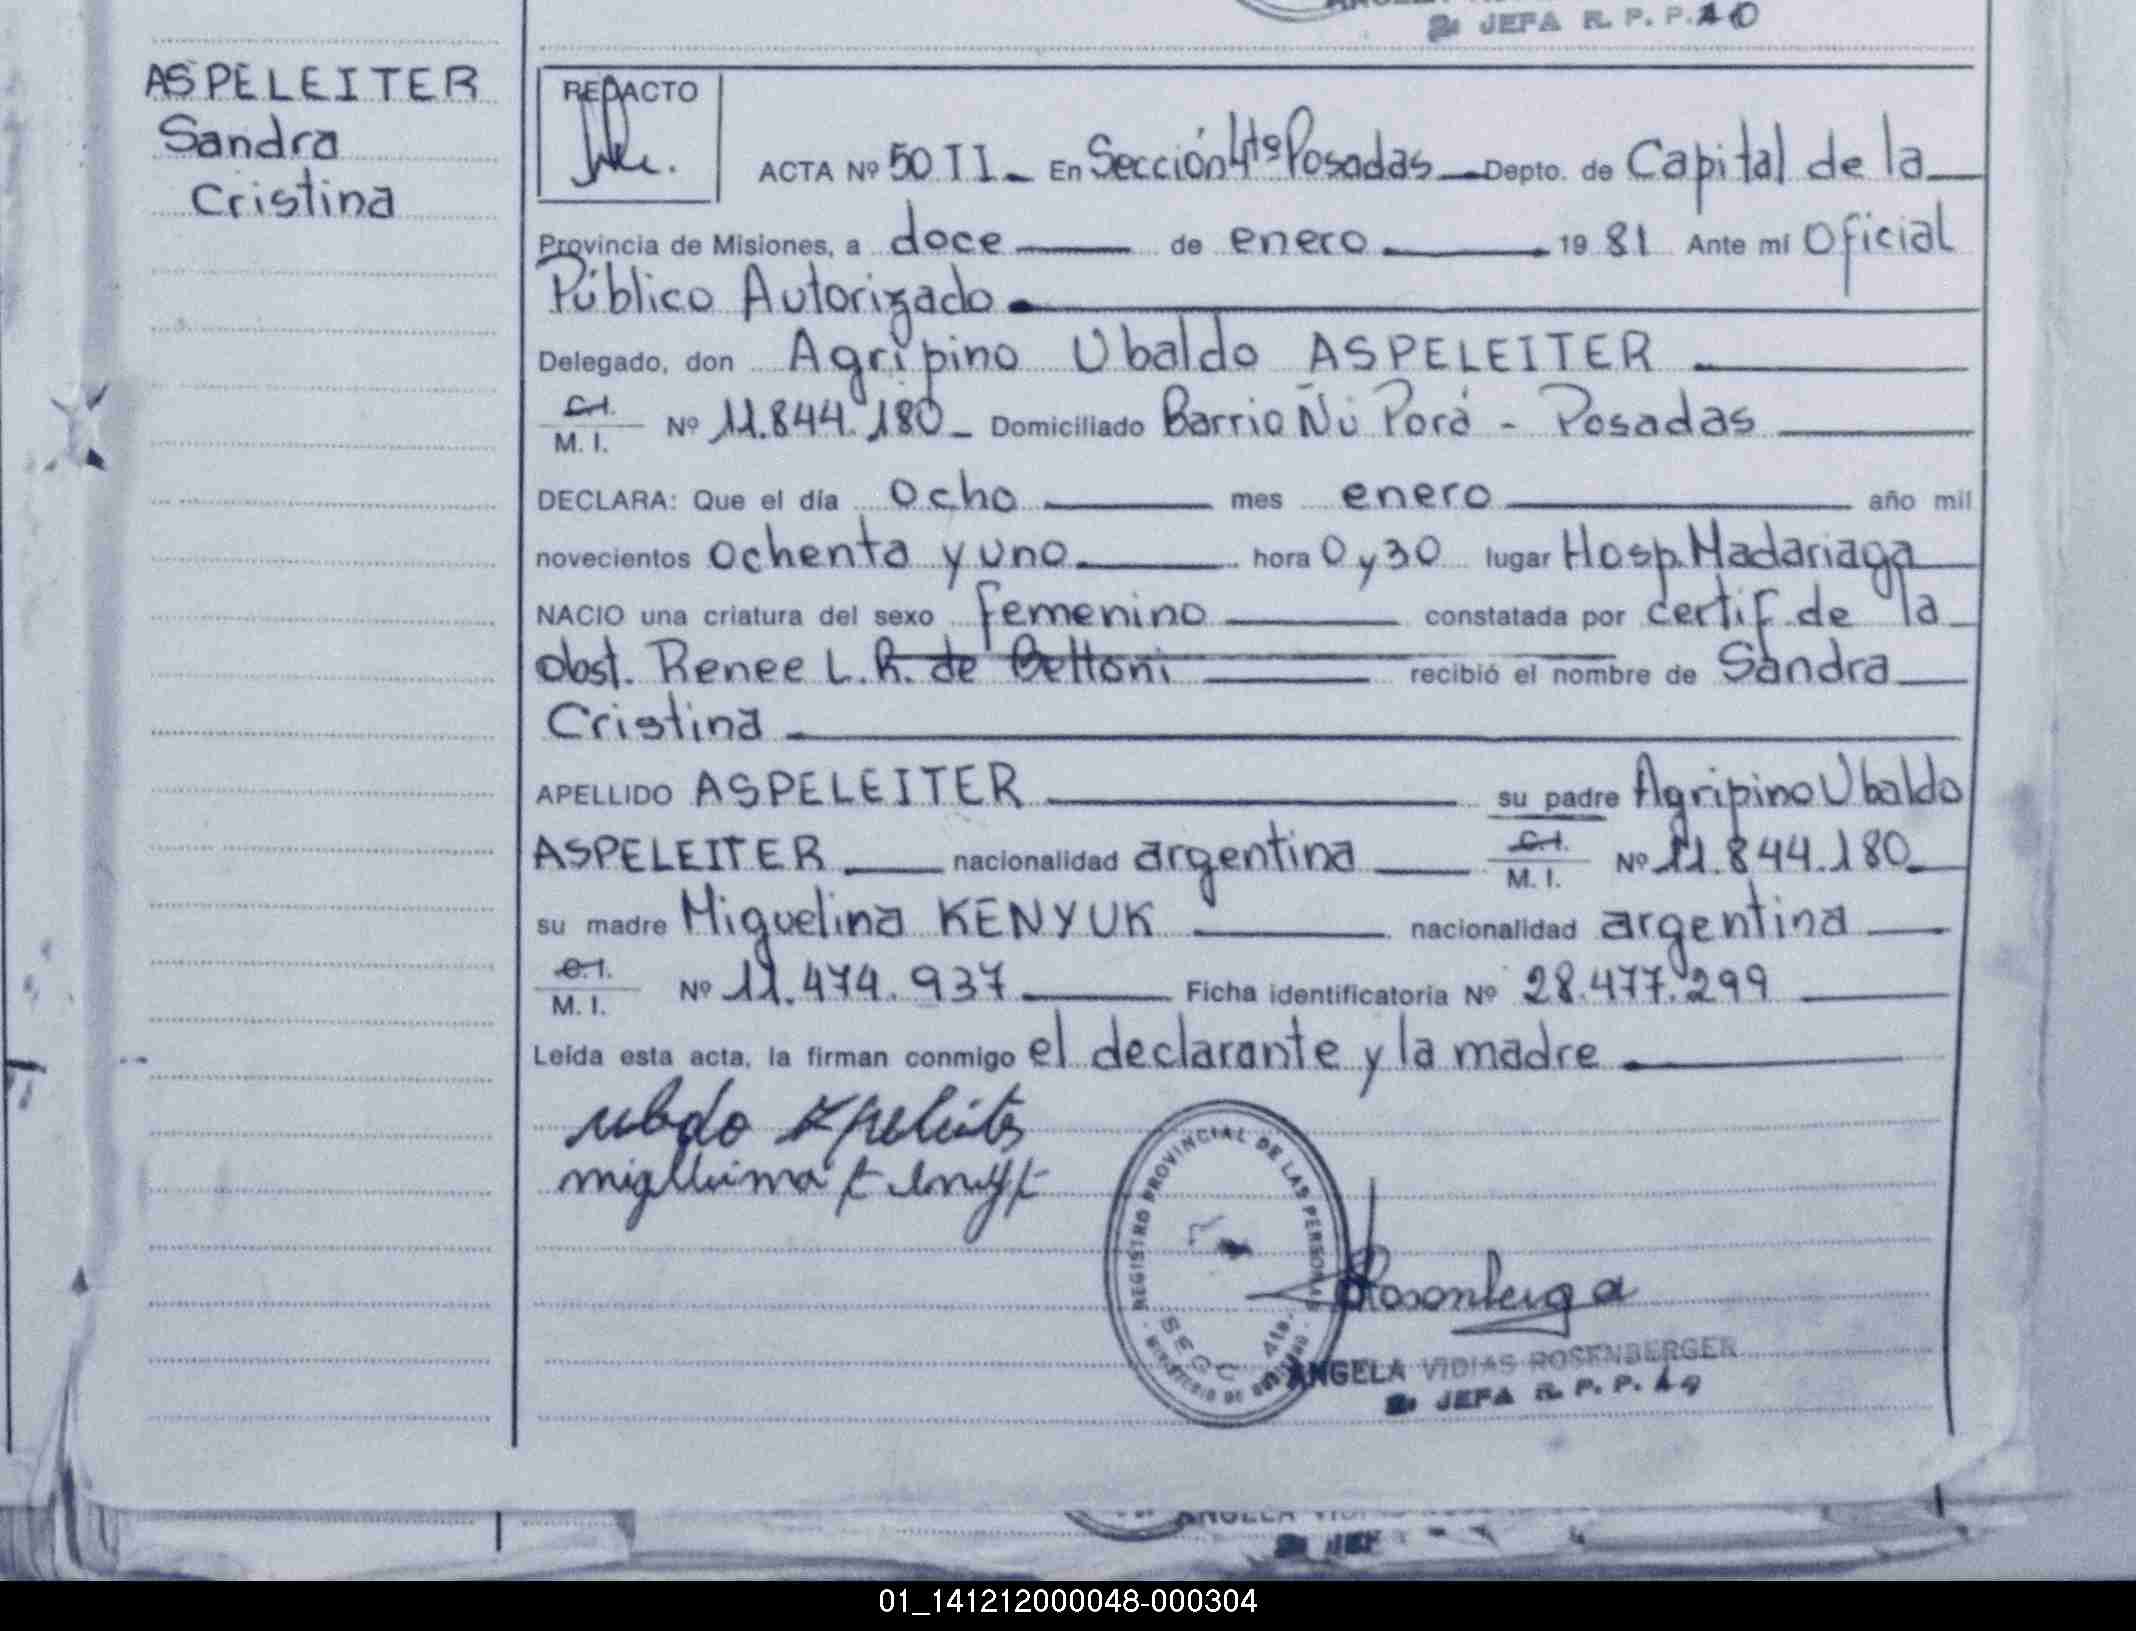 2º JEFA R. P. P.
ASPELEITER
Sandra
Cristina
REDACTO
ACTA Nº 50 II - En Sección 4tª Posadas - Depto. de Capital de la
Provincia de Misiones, a doce de enero 1981 Ante mí Oficial
Público Autorizado
Delegado, don Agripino Ubaldo ASPELEITER
C.I.
M. I. Nº 11.844.180 - Domiciliado Barrio Ñú Porá - Posadas
DECLARA: Que el día ocho mes enero año mil
novecientos ochenta y uno hora 0 y 30 lugar Hosp. Madariaga
NACIO una criatura del sexo femenino constatada por certif. de la
obst. Renee L. R. de Bettoni recibió el nombre de Sandra
Cristina
APELLIDO ASPELEITER su padre Agripino Ubaldo
ASPELEITER nacionalidad argentina C.I. M. I. Nº 11.844.180
su madre Miguelina KENYUK nacionalidad argentina
C.I.
M. I. Nº 11.474.937 Ficha identificatoria Nº 28.477.299
Leída esta acta, la firman conmigo el declarante y la madre
REGISTRO PROVINCIAL DE LAS PERSONAS
SECC 4ta.
MINISTERIO DE GOBIERNO
ANGELA VIDIAS ROSENBERGER
2º JEFA R. P. P.
01_141212000048-000304